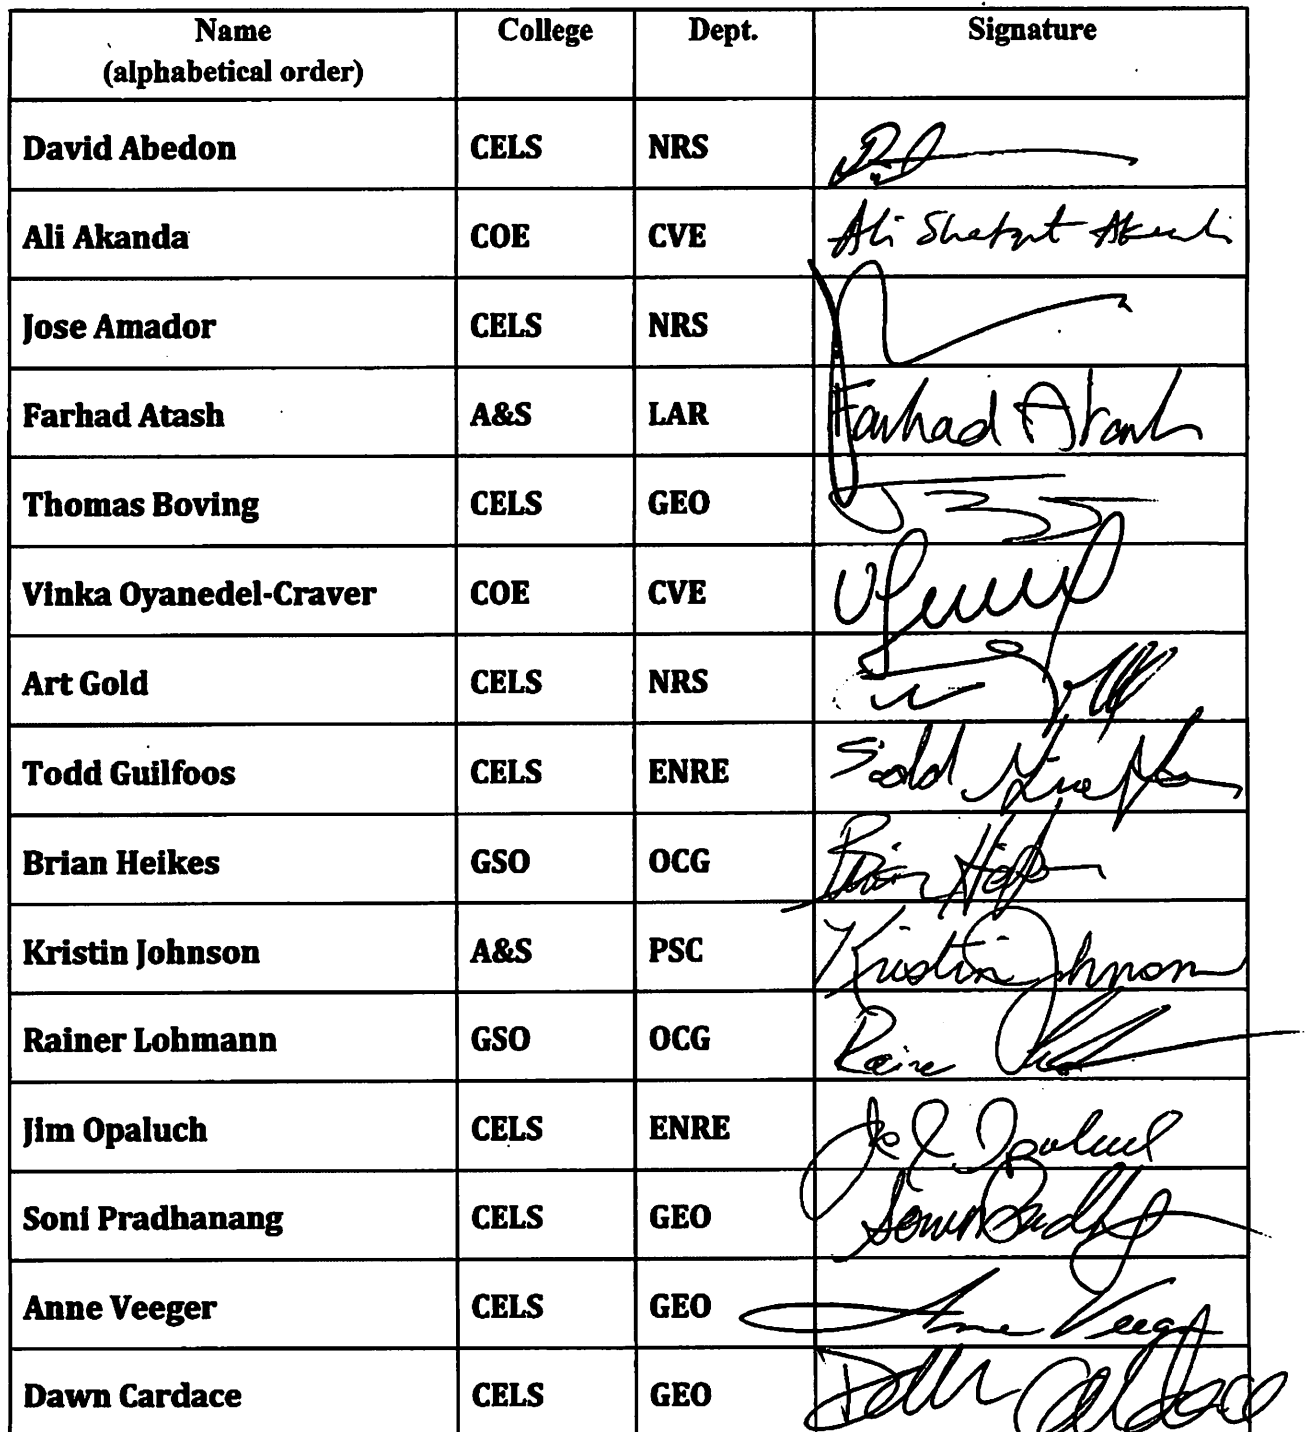 Name College Dept. Signature
(alphabetical order)
David Abedon CELS NRS
Ali Akanda COE CVE Ali
Jose Amador CELS NRS
Farhad Atash A&S LAR Farhad Atash
Thomas Boving CELS GEO
Vinka Oyanedel-Craver COE CVE
Art Gold CELS NRS
Todd Guilfoos CELS ENRE Todd
Brian Heikes GSO OCG Brian
Kristin Johnson A&S PSC Kristin Johnson
Rainer Lohmann GSO OCG
Jim Opaluch CELS ENRE Opaluch
Soni Pradhanang CELS GEO
Anne Veeger CELS GEO Anne Veeger
Dawn Cardace CELS GEO